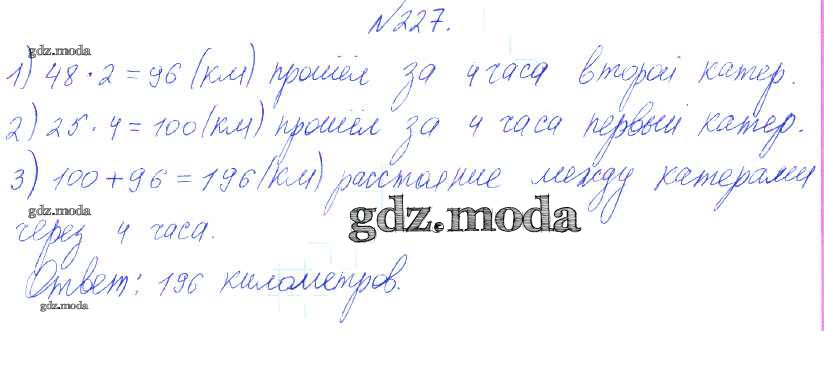 №227.
gdz.moda
1) 48·2=96(км) прошёл за 4 часа второй катер.
2) 25·4=100(км) прошёл за 4 часа первый катер.
3) 100+96=196(км) расстояние между катерами
gdz.moda
gdz.moda
через 4 часа.
Ответ: 196 километров.
gdz.moda